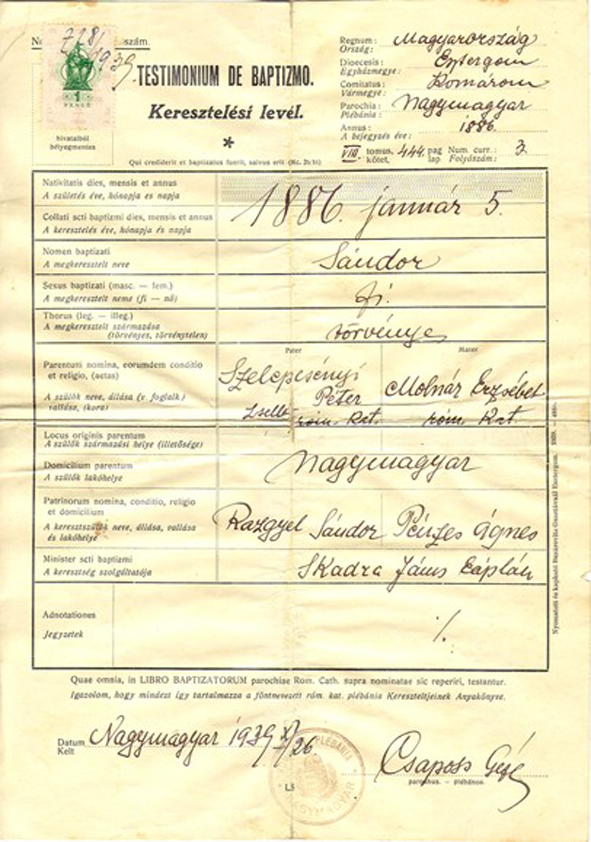 7281/1939. szám.
1
PENGŐ
hivatalból
bélyegmentes
TESTIMONIUM DE BAPTIZMO.
Keresztelési levél.
*
Qui crediderit et baptizatus fuerit, salvus erit (Mc. 21/16)
Regnum:
Ország: Magyarország
Dioecesis
Egyházmegye: Esztergom
Comitatus
Vármegye: Komárom
Parochia:
Plébánia: Nagymagyar
Annus:
A bejegyzés éve: 1886.
VIII. tomus, kötet, 444 pag lap Num. curr.: Folyószám: 3.
Nativitatis dies, mensis et annus
A születés éve, hónapja és napja
Collati scti baptizmi dies, mensis et annus
A keresztelés éve, hónapja és napja
1886. január 5.
Nomen baptizati
A megkeresztelt neve
Sándor
Sexus baptizati (masc. — fem.)
A megkeresztelt neme (fi — nő)
fi.
Thorus (leg. — illeg.)
A megkeresztelt származása
(törvényes, törvénytelen)
törvényes
Parentum nomina, eorumdem conditio
et religio, (aetas)
A szülők neve, állása (v. foglalk.)
vallása, (kora)
Pater
Szelepcsényi
Péter
zsellér róm. Kat.
Mater
Molnár Erzsébet
róm. Kat.
Locus originis parentum
A szülők származási helye (illetősége)
Domicilium parentum
A szülők lakóhelye
Nagymagyar
Patrinorum nomina, conditio, religio
et domicilium
A keresztszülők neve, állása, vallása
és lakóhelye
Razgyel Sándor Pénzes Ágnes
Minister scti baptizmi
A keresztség szolgáltatója
Skadra János káplán
Adnotationes
Jegyzetek
·/.
Quae omnia, in LIBRO BAPTIZATORUM parochiae Rom. Cath. supra nominatae sic reperiri, testantur.
Igazolom, hogy mindezt így tartalmazza a föntnevezett róm. kat. plébánia Kereszteltjeinek Anyakönyve.
Datum
Kelt
Nagymagyar 1939 XI/26.
PLÉBÁNIA
NAGYMAGYAR
parochus. - plébános.